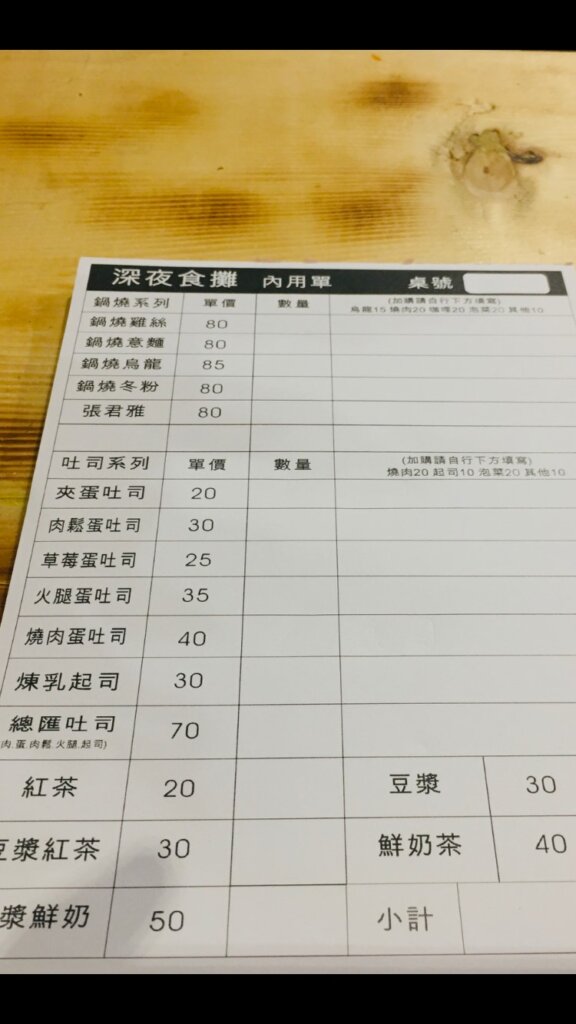 深夜食攤 內用單 桌號
鍋燒系列 單價 數量 (加購請自行下方填寫)
烏龍15 燒肉20 咖哩20 泡菜20 其他10
鍋燒雞絲 80
鍋燒意麵 80
鍋燒烏龍 85
鍋燒冬粉 80
張君雅 80
吐司系列 單價 數量 (加購請自行下方填寫)
燒肉20 起司10 泡菜20 其他10
夾蛋吐司 20
肉鬆蛋吐司 30
草莓蛋吐司 25
火腿蛋吐司 35
燒肉蛋吐司 40
煉乳起司 30
總匯吐司 70
肉.蛋.肉鬆.火腿.起司)
紅茶 20 豆漿 30
豆漿紅茶 30 鮮奶茶 40
漿鮮奶 50 小計